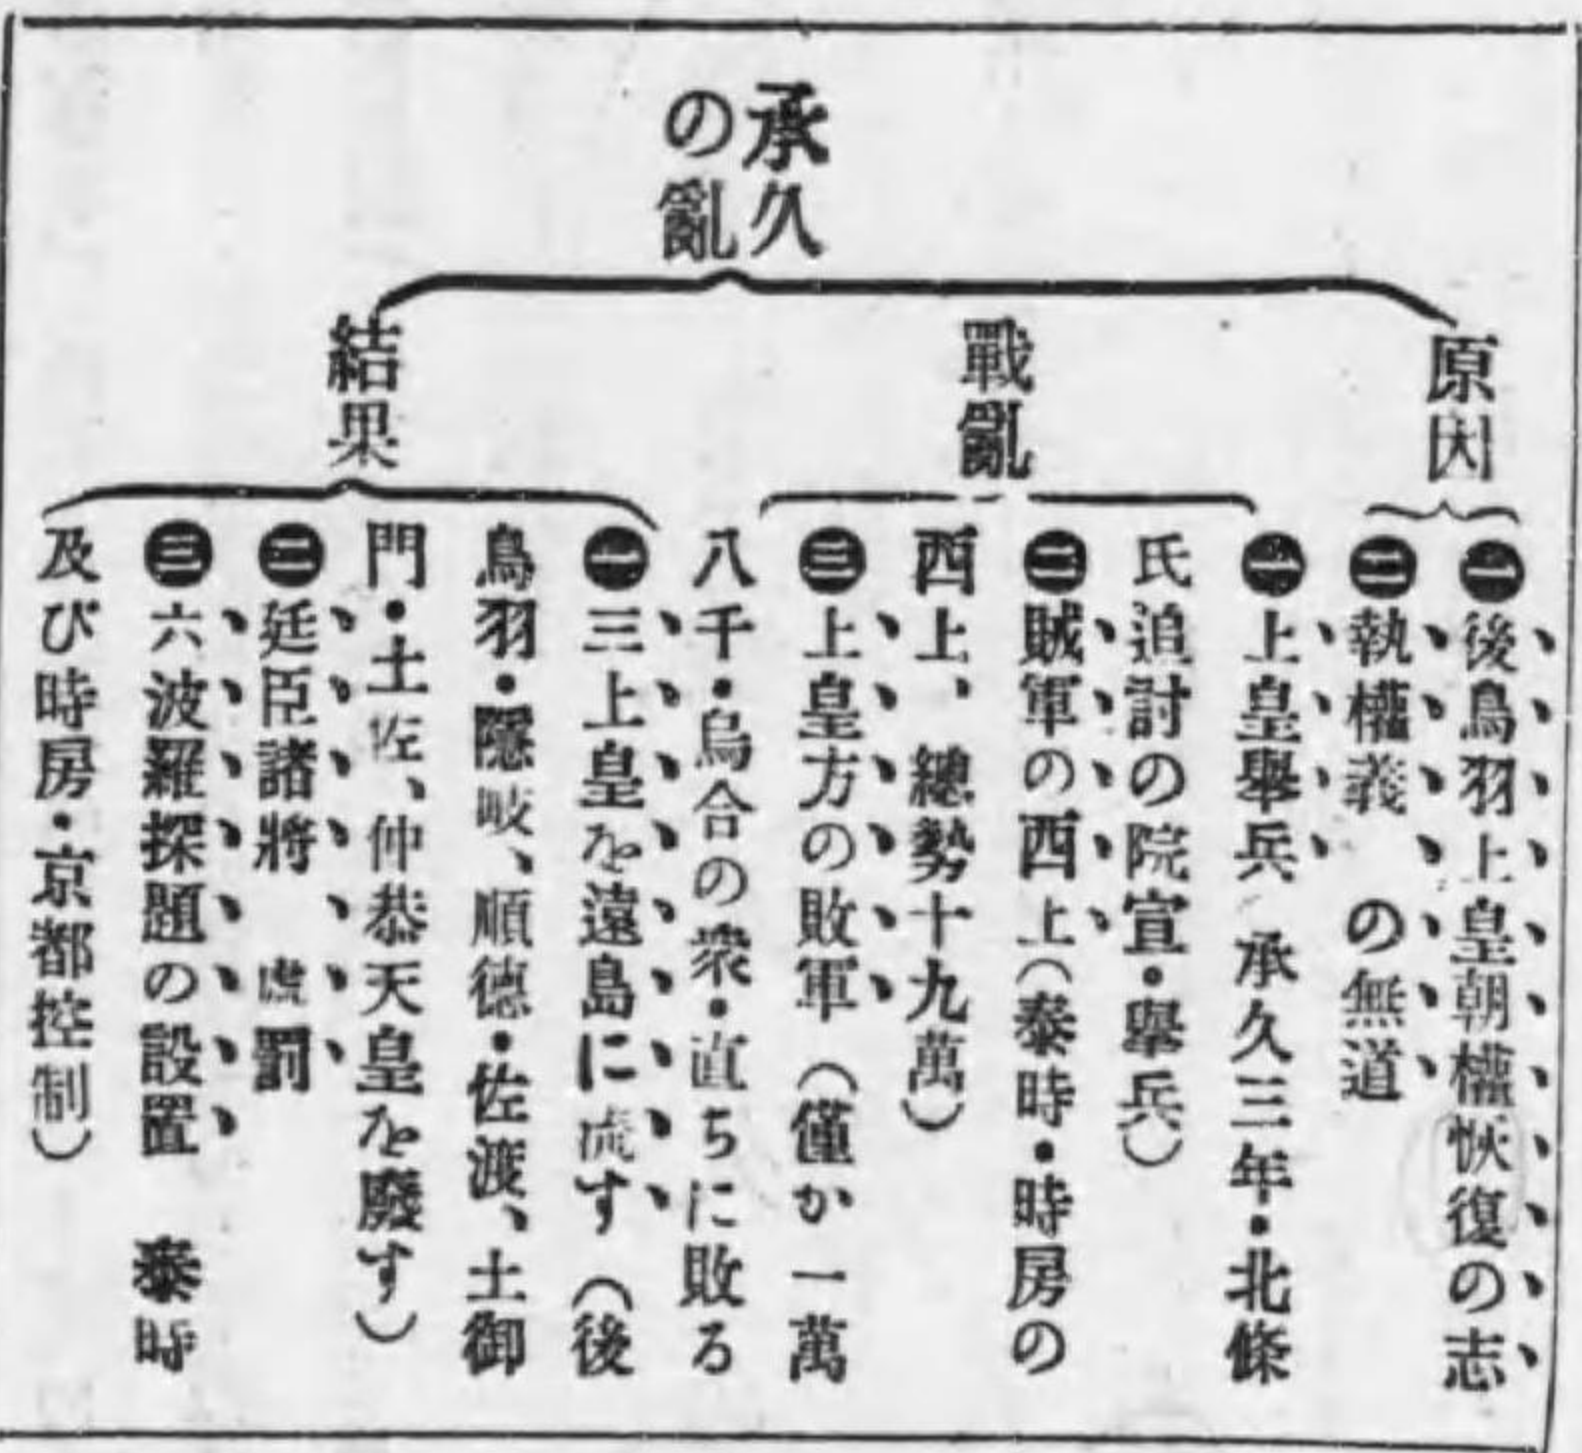 承久
の亂
原因
㊀後鳥羽上皇朝權恢復の志
㊁執權義 の無道
戰亂
㊀上皇擧兵 承久三年・北條
氏追討の院宣・擧兵)
㊁賊軍の西上(泰時・時房の
西上、總勢十九萬)
㊂上皇方の敗軍(僅か一萬
八千・烏合の衆・直ちに敗る
結果
㊀三上皇を遠島に流す(後
鳥羽・隱岐、順德・佐渡、土御
門・土佐、仲恭天皇を廢す)
㊁廷臣諸將 處罰
㊂六波羅探題の設置 泰時
及び時房・京都控制)